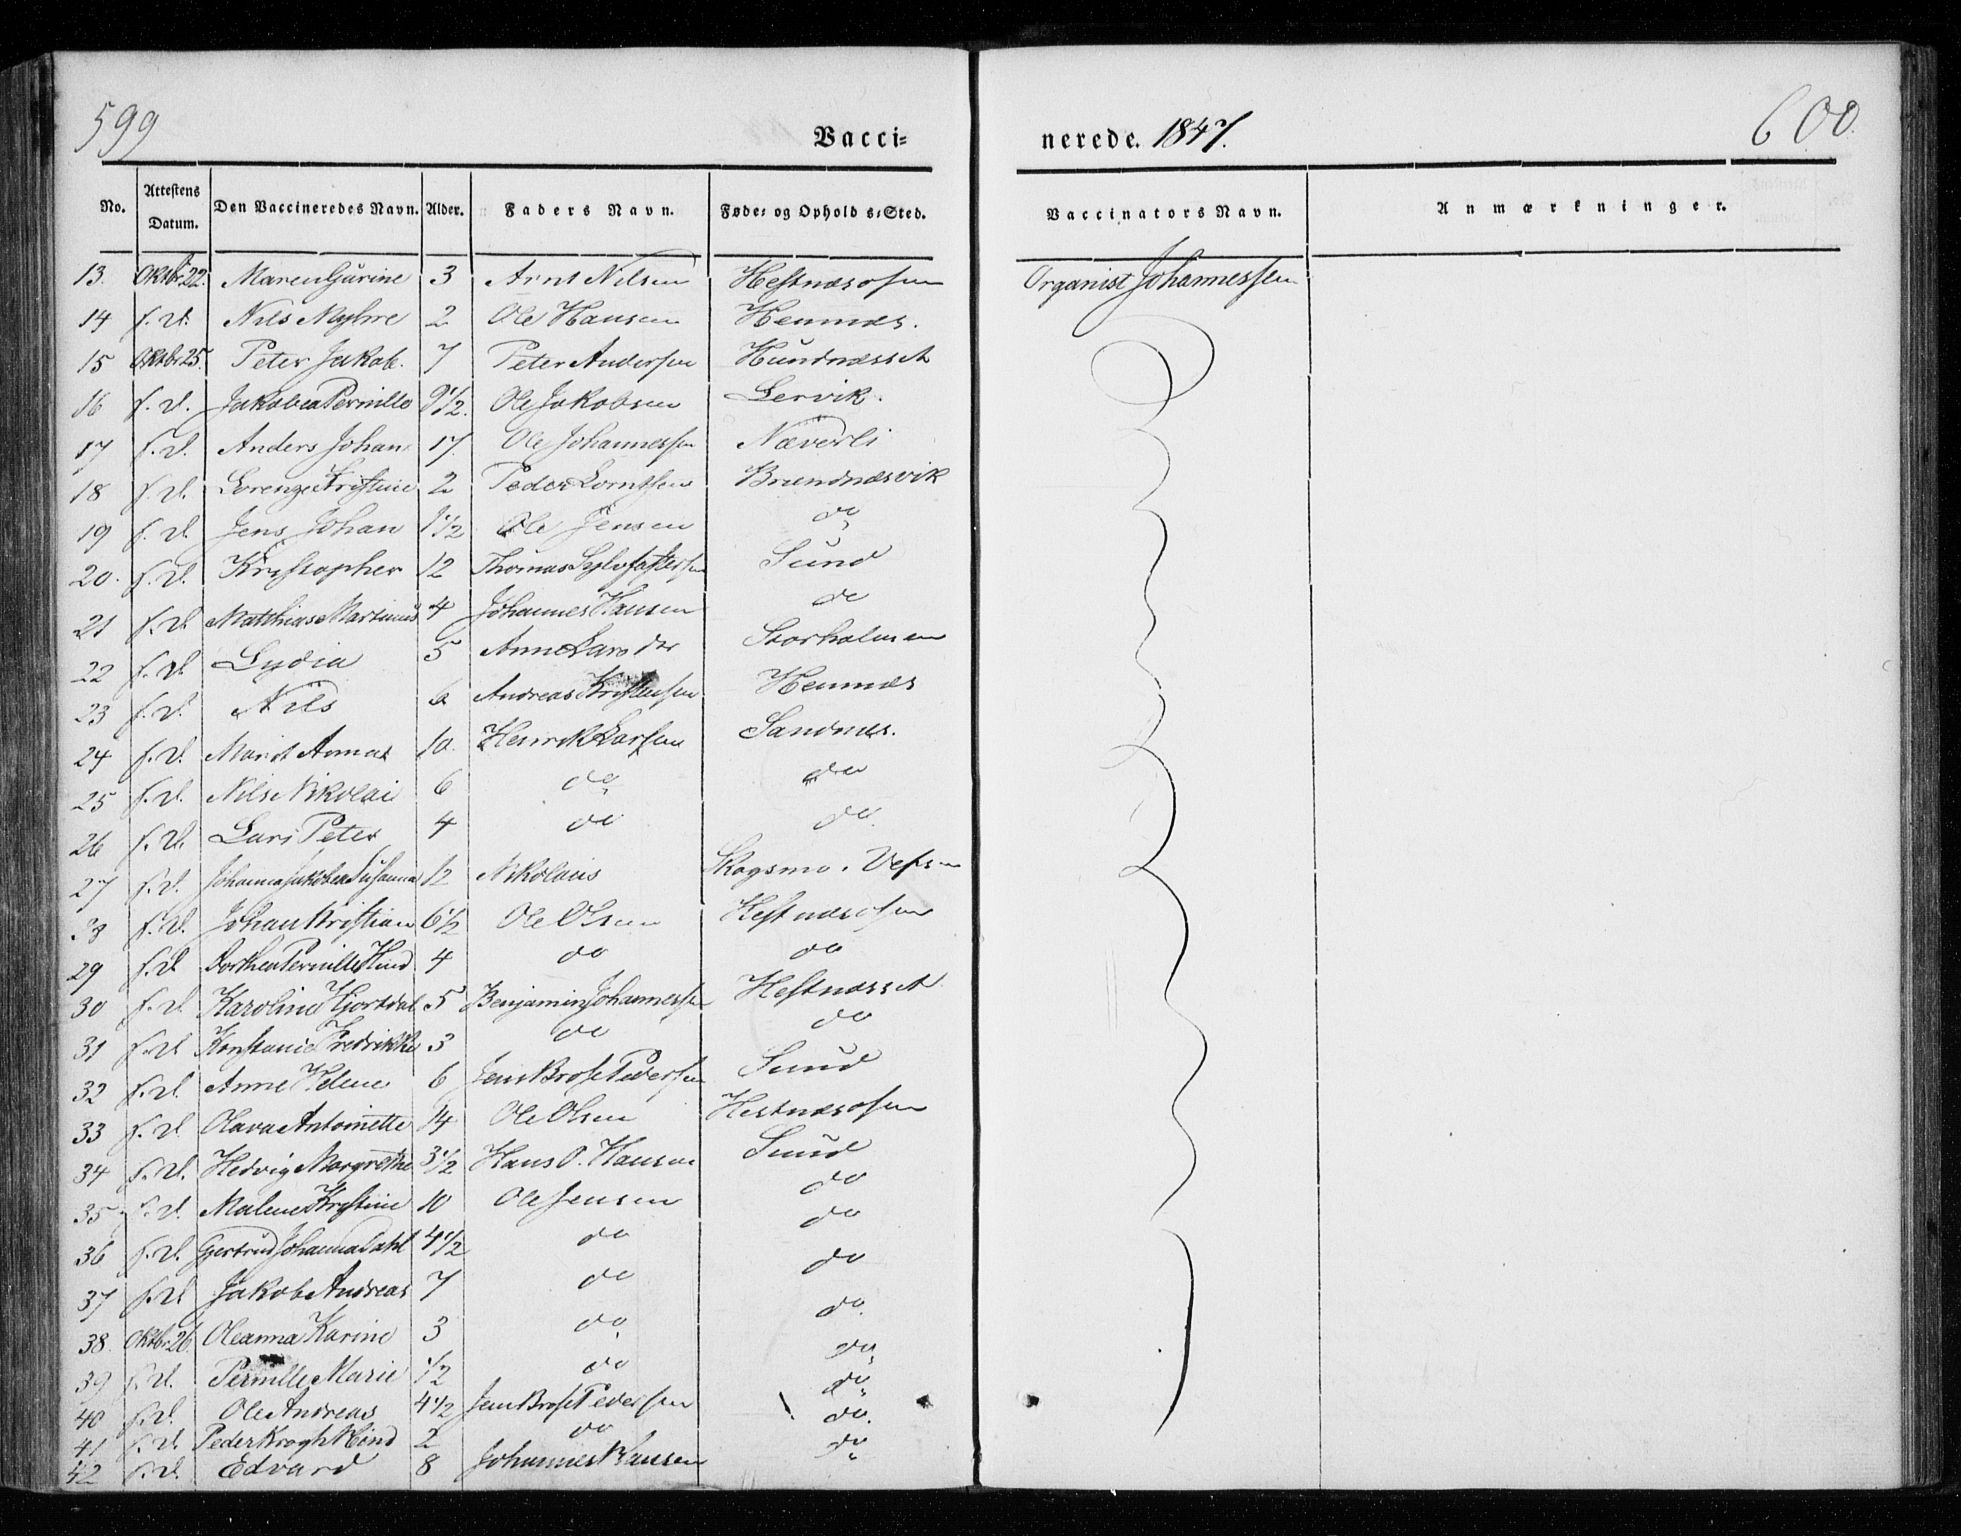 599
Vacci=
nerede. 1847.
600.
No. Attestens Datum. Den Vaccineredes Navn. Alder. Faders Navn. Føde- og Opholds-Sted. Vaccinators Navn. Anmærkninger.
13. Oktbr 22. Maren Gurine 3 Arnt Nilsen Hestnæsosen Organist Johannessen
14 s. d. Nils Myhre 2 Ole Hansen Hemnæs.
15 Oktbr 25. Peter Jakob. 7 Peter Andersen Hundnæsset
16 s. d. Jakobea Pernille 9 1/2. Ole Jakobsen Lervik.
17 s. d. Anders Johan 17. Ole Johannessen Næverli
18 s. d. Lorenze Kristine 2 Peder Lorntsen Brundnæsvik
19 s. d. Jens Johan 1 1/2 Ole Jensen do
20. s. d. Kristopher 12 Thomas Sylvestersen Sund
21 s. d. Matthias Martinus 4 Johannes Hansen do
22 s. d. Lydia 5 Anne Storholmen
23 s. d. Nils 6 Andreas Kristensen Hemnæs
24 s. d. Marit Annas 10. Henrik Larsen Sandnæs.
25 s. d. Nils Nikolai 6 do do
26 s. d. Lars Peter 4 do do.
27 s. d. Johanna Jakobea Susanna 12 Nikolaus Skogsmo i Vefsn
28 s. d. Johan Kristian 6 1/2 Ole Olsen Hestnæsosen
29 s. d. Dorthea Pernille Hind 4 do do
30 s. d. Karoline Hjortdal 5 Benjamin Johannessen Hestnæsset
31 s. d. Konstanse Fredrikke 3 do do
32 s. d. Anne Helene 6 Jens Brose Pedersen Sund
33 s. d. Olava Antoinette 14 Ole Olsen Hestnæsosen
34 s. d. Hedvig Margrethe 3 1/2 Hans P. Hansen Sund
35 s. d. Malene Kristine 10 Ole Jensen do
36 s. d. Gjertrud Johanna Dahl 4 1/2 do do
37 s. d. Jakob Andreas 7 do do
38. Oktbr 26. Oleanna Karine 3 do do.
39 s. d. Pernille Marie 1/2 do do
40 s. d. Ole Andreas 4 1/2 Jens Brose Pedersen do
41 s. d. Peder Krogh Hind 2 do do.
42 s. d. Edvard 8 Johannes Hansen do